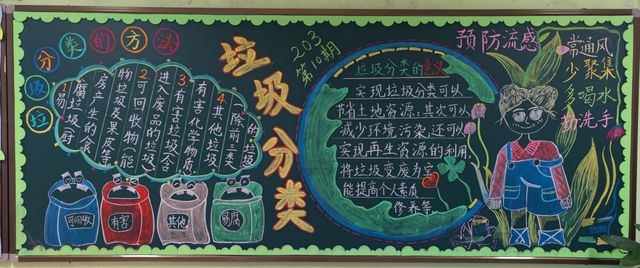 垃圾分类的方法
1易
腐垃圾(厨
房产生的食
物垃圾及果皮等
2可回收物(能
进入废品的垃圾
3有害垃圾(含
有害化学物质
4其他垃圾
除前三类
的垃圾
可回收
有害
其他
易腐
垃圾分类
203
第10期
垃圾分类的意义
实现垃圾分类可以
节省土地资源;其次可以
减少环境污染;还可以
实现再生资源的利用,
将垃圾变废为宝
能提高个人素质
修养等
预防流感
常通风
少聚集
多喝水
勤洗手